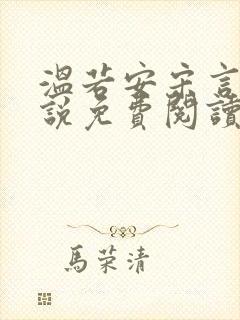 溫若安宋言
說免費閱讀
馬荣清